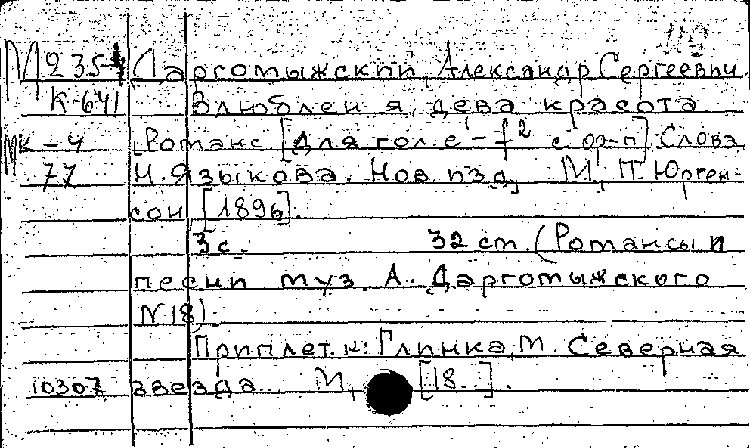 М 235 Даргомыжский, Александр Сергеевич
К-641 Влюблен я, дева красота
МК-4 Романс [Для гол. e'-f² с ф-п] Слова
77 Н. Языкова. Нов. изд., М., П. Юрген-
сон, [1896].
3 с. 32 см. (Романсы и
песни муз. А. Даргомыжского
N 18)
Приплет. к: Глинка, М. Северная
10307 звезда. М, [18..].